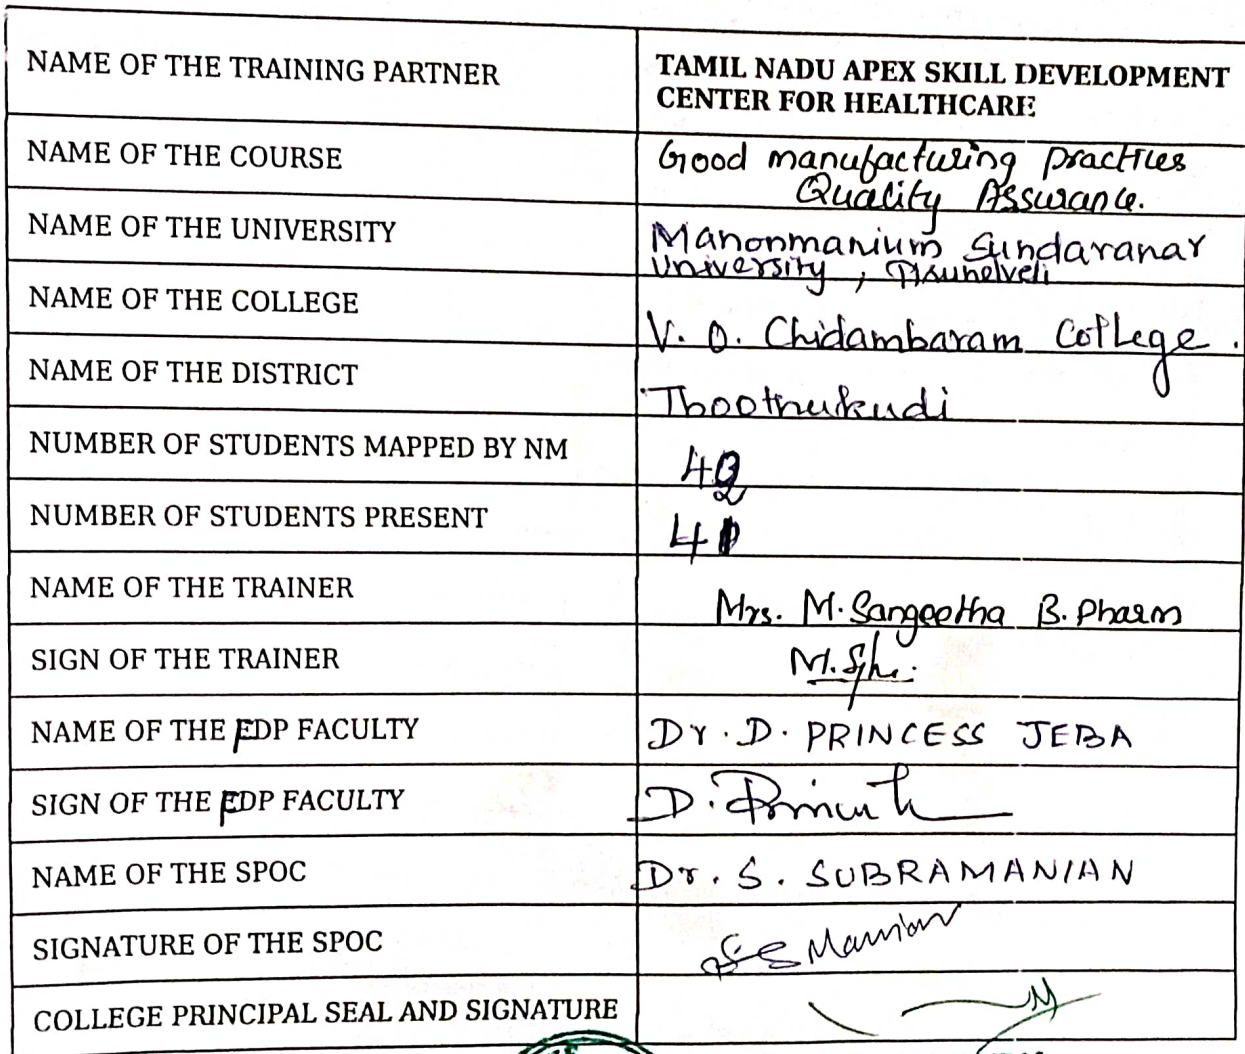 NAME OF THE TRAINING PARTNER
TAMIL NADU APEX SKILL DEVELOPMENT
CENTER FOR HEALTHCARE
NAME OF THE COURSE
Good manufacturing practices
Quality Assurance.
NAME OF THE UNIVERSITY
Manonmanium Sundaranar
University, Tirunelveli
NAME OF THE COLLEGE
V. O. Chidambaram College.
NAME OF THE DISTRICT
Thoothukudi
NUMBER OF STUDENTS MAPPED BY NM
42
NUMBER OF STUDENTS PRESENT
41
NAME OF THE TRAINER
Mrs. M. Sangeetha B. Pharm
SIGN OF THE TRAINER
NAME OF THE FDP FACULTY
Dr. D. PRINCESS JEBA
SIGN OF THE FDP FACULTY
NAME OF THE SPOC
Dr. S. SUBRAMANIAN
SIGNATURE OF THE SPOC
COLLEGE PRINCIPAL SEAL AND SIGNATURE